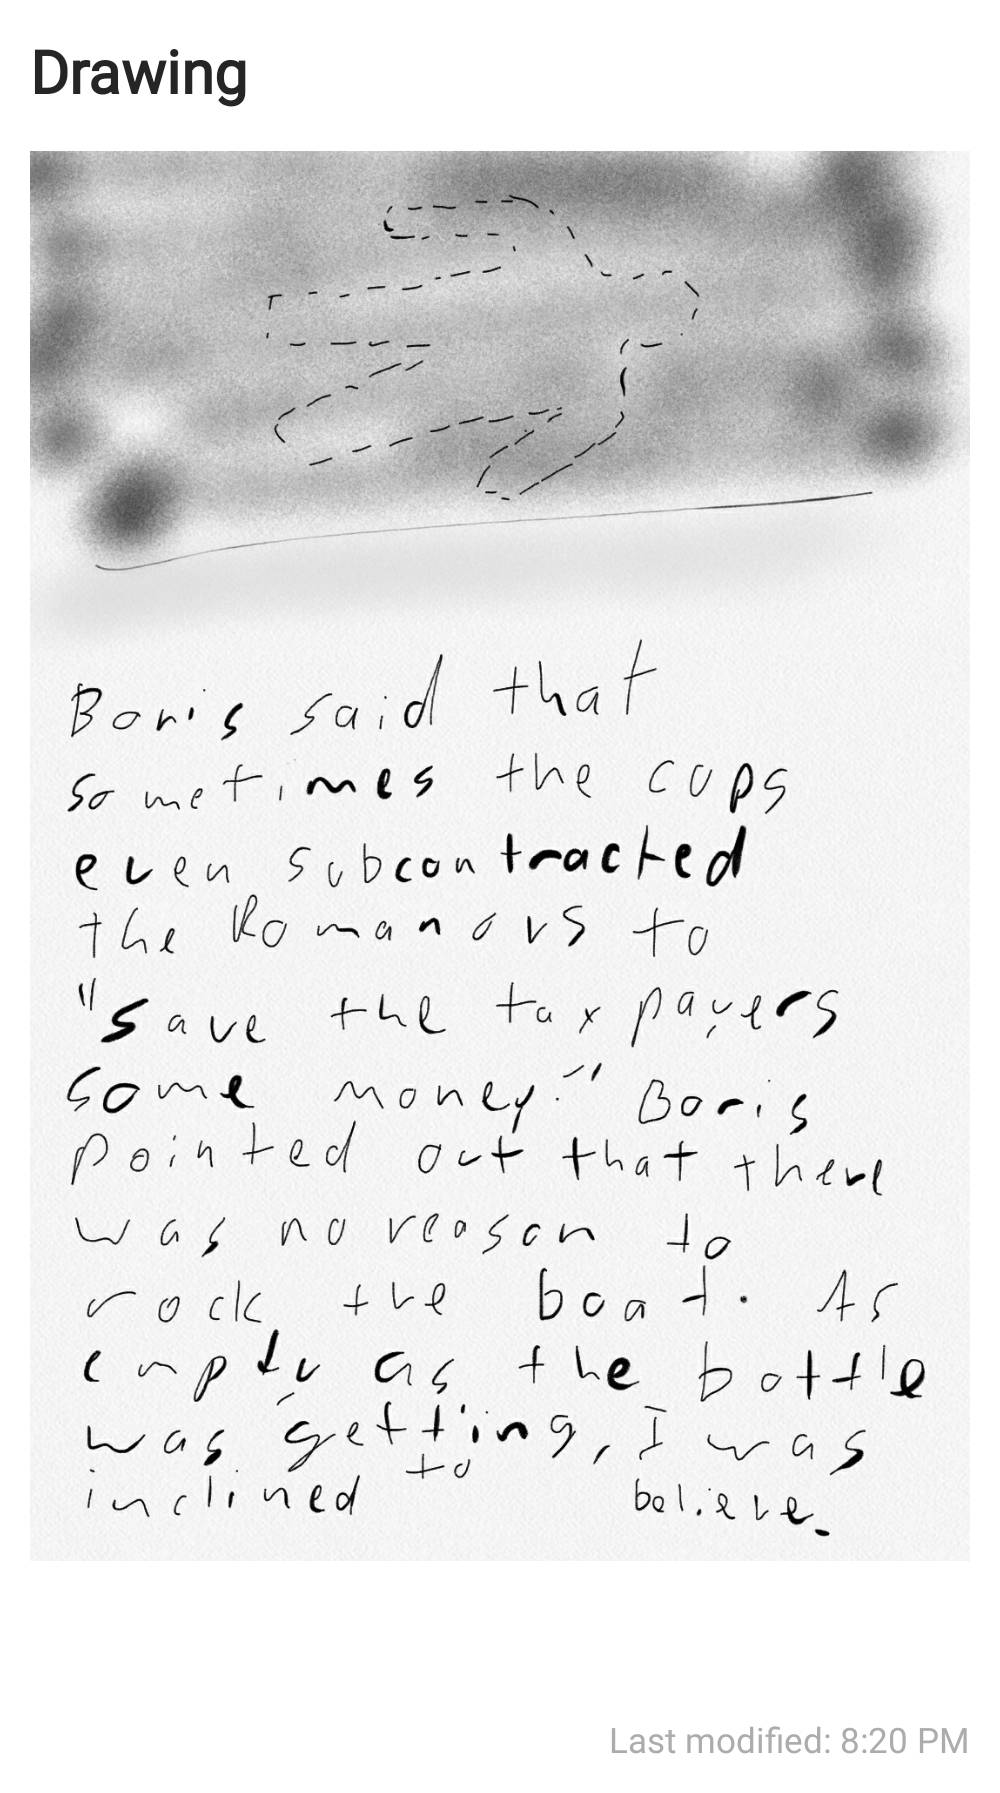 Drawing
Boris said that
sometimes the cops
even subcontracted
the Romanovs to
"save the taxpayers
some money." Boris
pointed out that there
was no reason to
rock the boat. As
empty as the bottle
was getting, I was
inclined to believe.
Last modified: 8:20 PM